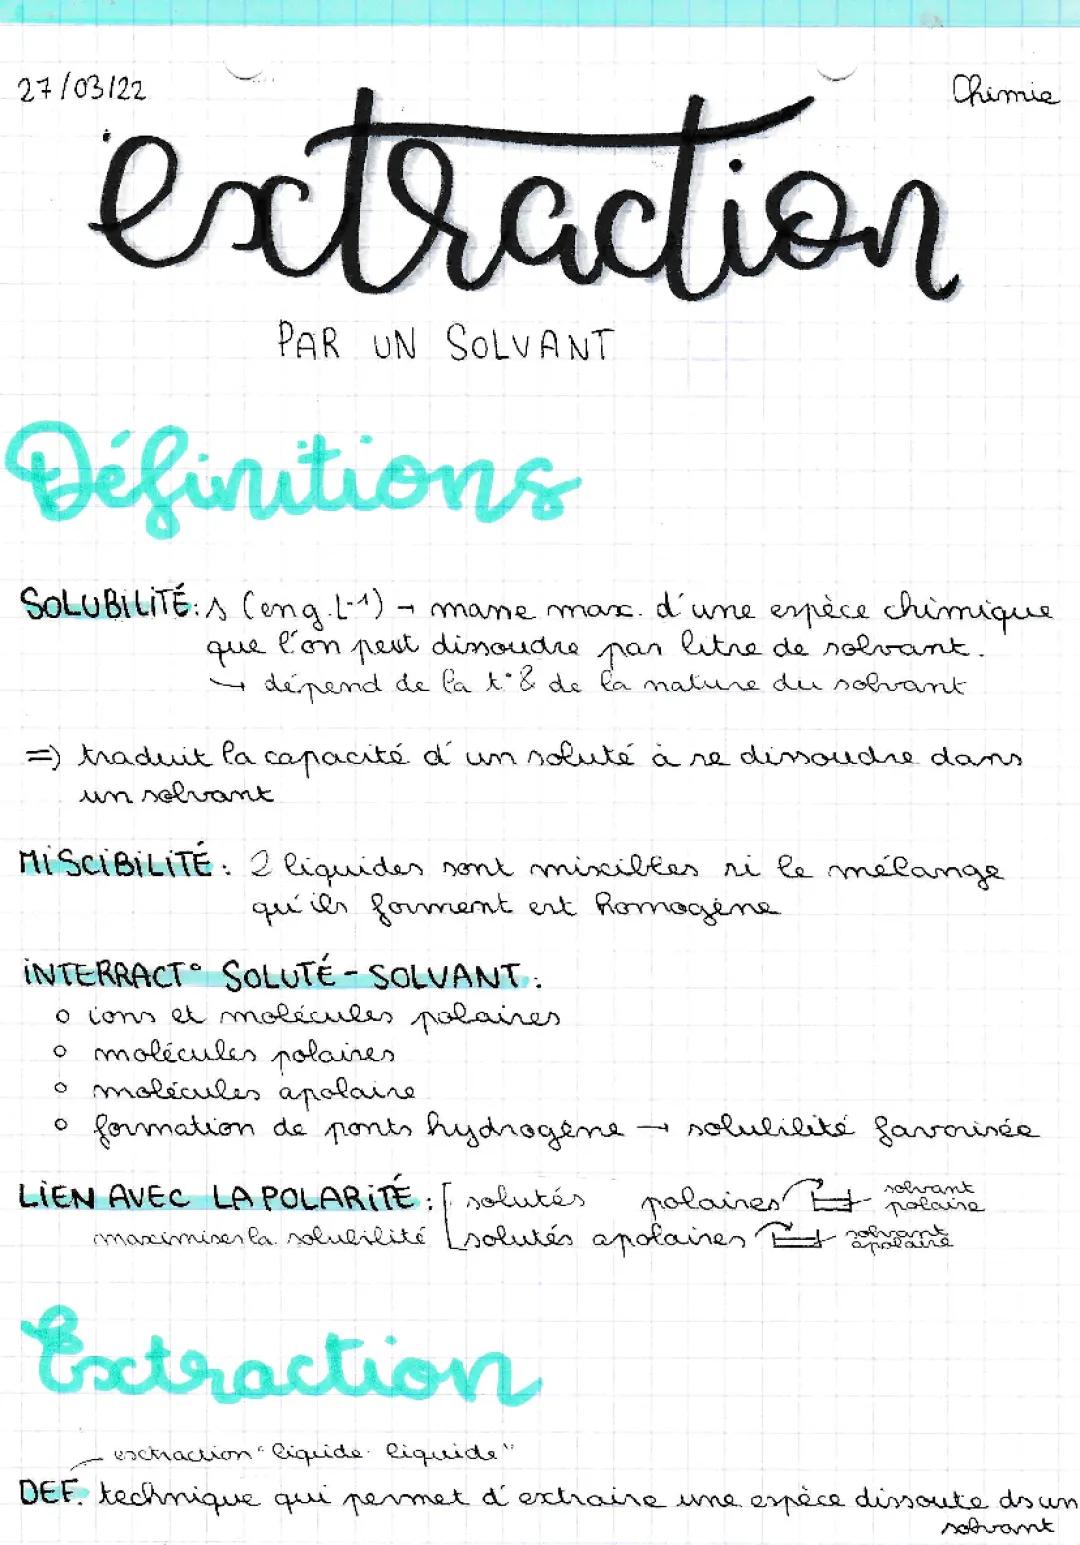 27/03/22 Chimie
extraction
PAR UN SOLVANT
Définitions
SOLUBILITÉ: s (en g.L-1) → masse max. d'une espèce chimique
que l'on peut dissoudre par litre de solvant.
↳ dépend de la t° & de la nature du solvant
=> traduit la capacité d'un soluté à se dissoudre dans
un solvant
MISCIBILITÉ: 2 liquides sont miscibles si le mélange
qu'ils forment est homogène
INTERRACT° SOLUTÉ - SOLVANT:
o ions et molécules polaires
o molécules polaires
o molécules apolaire
o formation de ponts hydrogène → solubilité favorisée
LIEN AVEC LA POLARITÉ: [ solutés polaires solvant polaire
maximiser la solubilité [ solutés apolaires solvant apolaire
Extraction
extraction "liquide-liquide"
DEF. technique qui permet d'extraire une espèce dissoute ds un
solvant